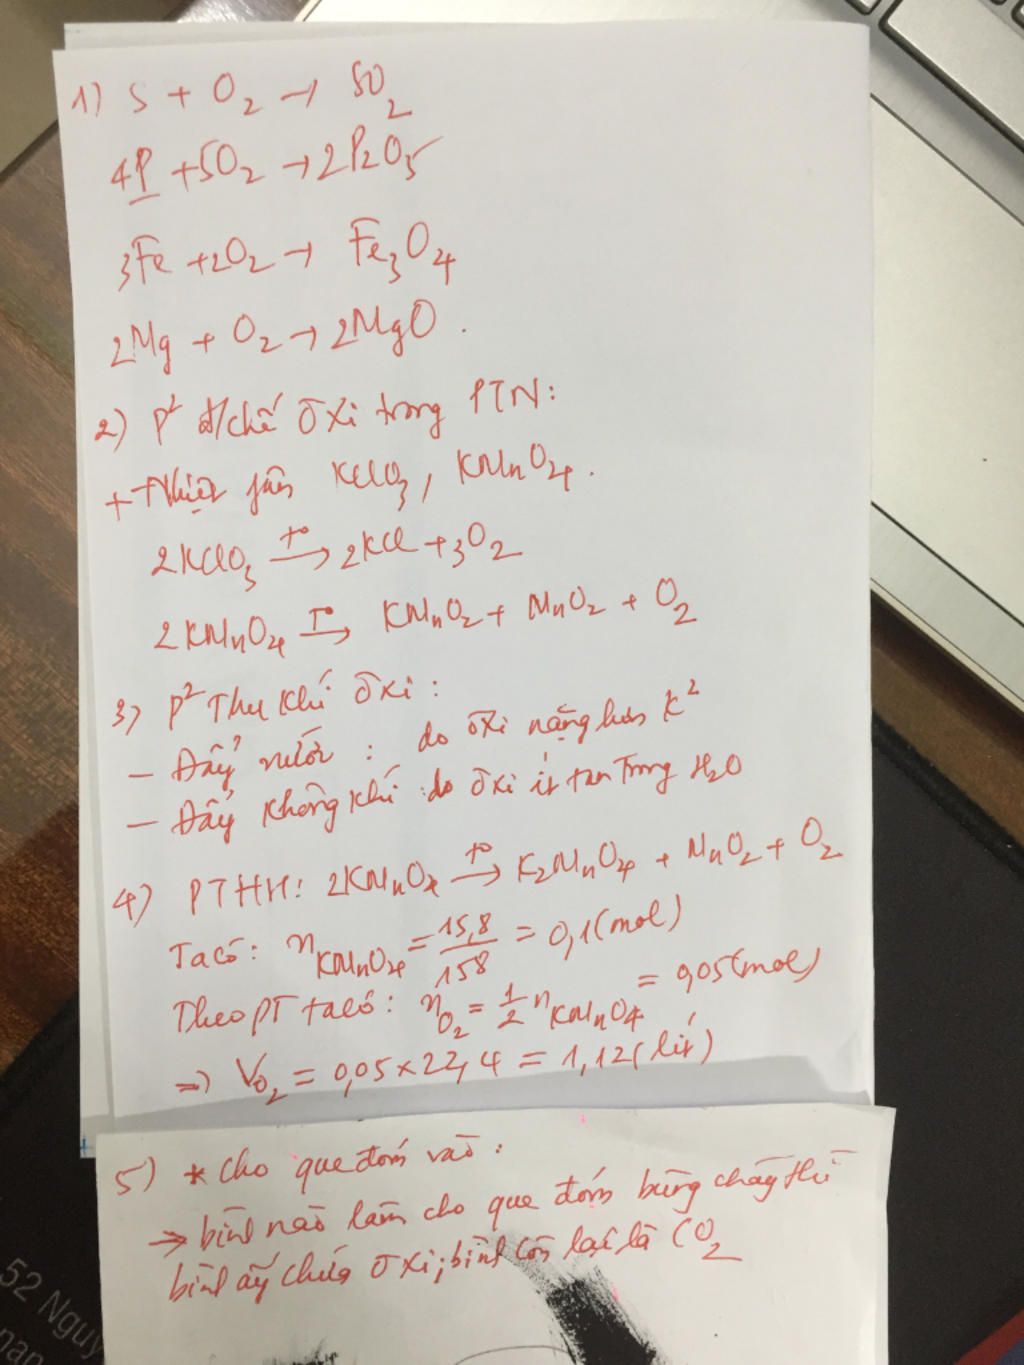 1) S + O2 → SO2
4P + 5O2 → 2P2O5
3Fe + 2O2 → Fe3O4
2Mg + O2 → 2MgO.
2) P² đ/chế ôxi trong PTN:
+ Nhiệt phân KClO3, KMnO4.
2KClO3 t° → 2KCl + 3O2
2KMnO4 t° → KMnO2 + MnO2 + O2
3) P² Thu khí ôxi:
- Đẩy nước: do ôxi nặng hơn k²
- Đẩy không khí: do ôxi ít tan trong H2O
4) PTHH: 2KMnO4 t° → K2MnO4 + MnO2 + O2
Ta có: nKMnO4 = 15,8/158 = 0,1 (mol)
Theo PT ta có: nO2 = 1/2 nKMnO4 = 0,05 (mol)
=> VO2 = 0,05 x 22,4 = 1,12 (lít)
5) * Cho que đóm vào:
→ bình nào làm cho que đóm bùng cháy thì
bình ấy chứa ôxi; bình còn lại là CO2
52 Nguy